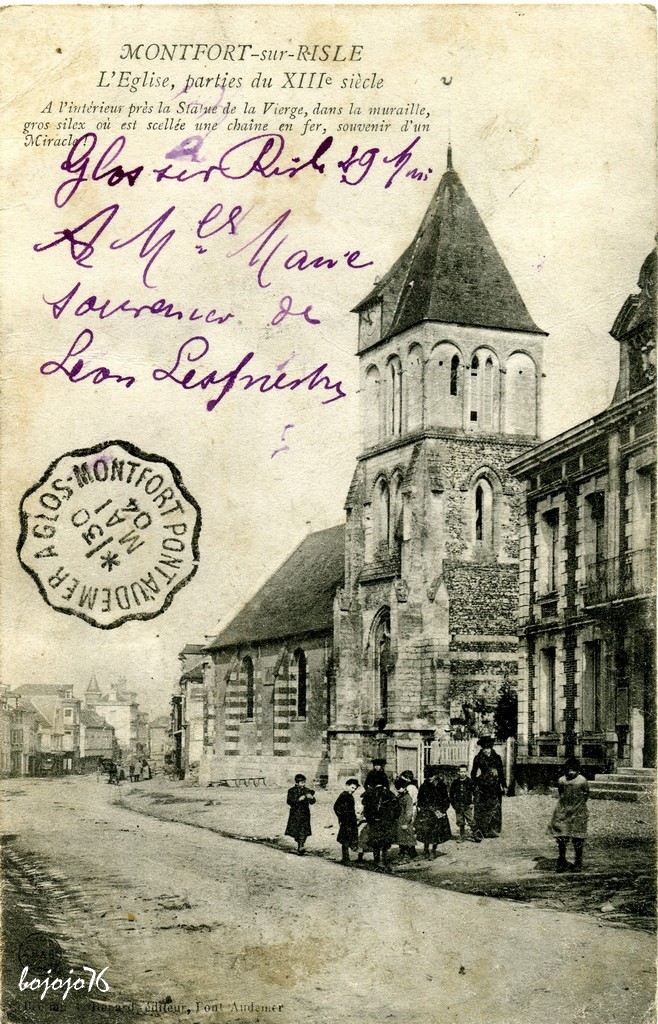 MONTFORT-sur-RISLE
L'Eglise, parties du XIIIe siècle
A l'intérieur près la Statue de la Vierge, dans la muraille,
gros silex où est scellée une chaîne en fer, souvenir d'un
Miracle!
Glos sur Risle 29 Mai
A Mlle Marie
souvenir de
Léon
A GLOS-MONTFORT PONTAUDEMER
*130
MAI
04
bojojo76
éditeur, Pont Audemer